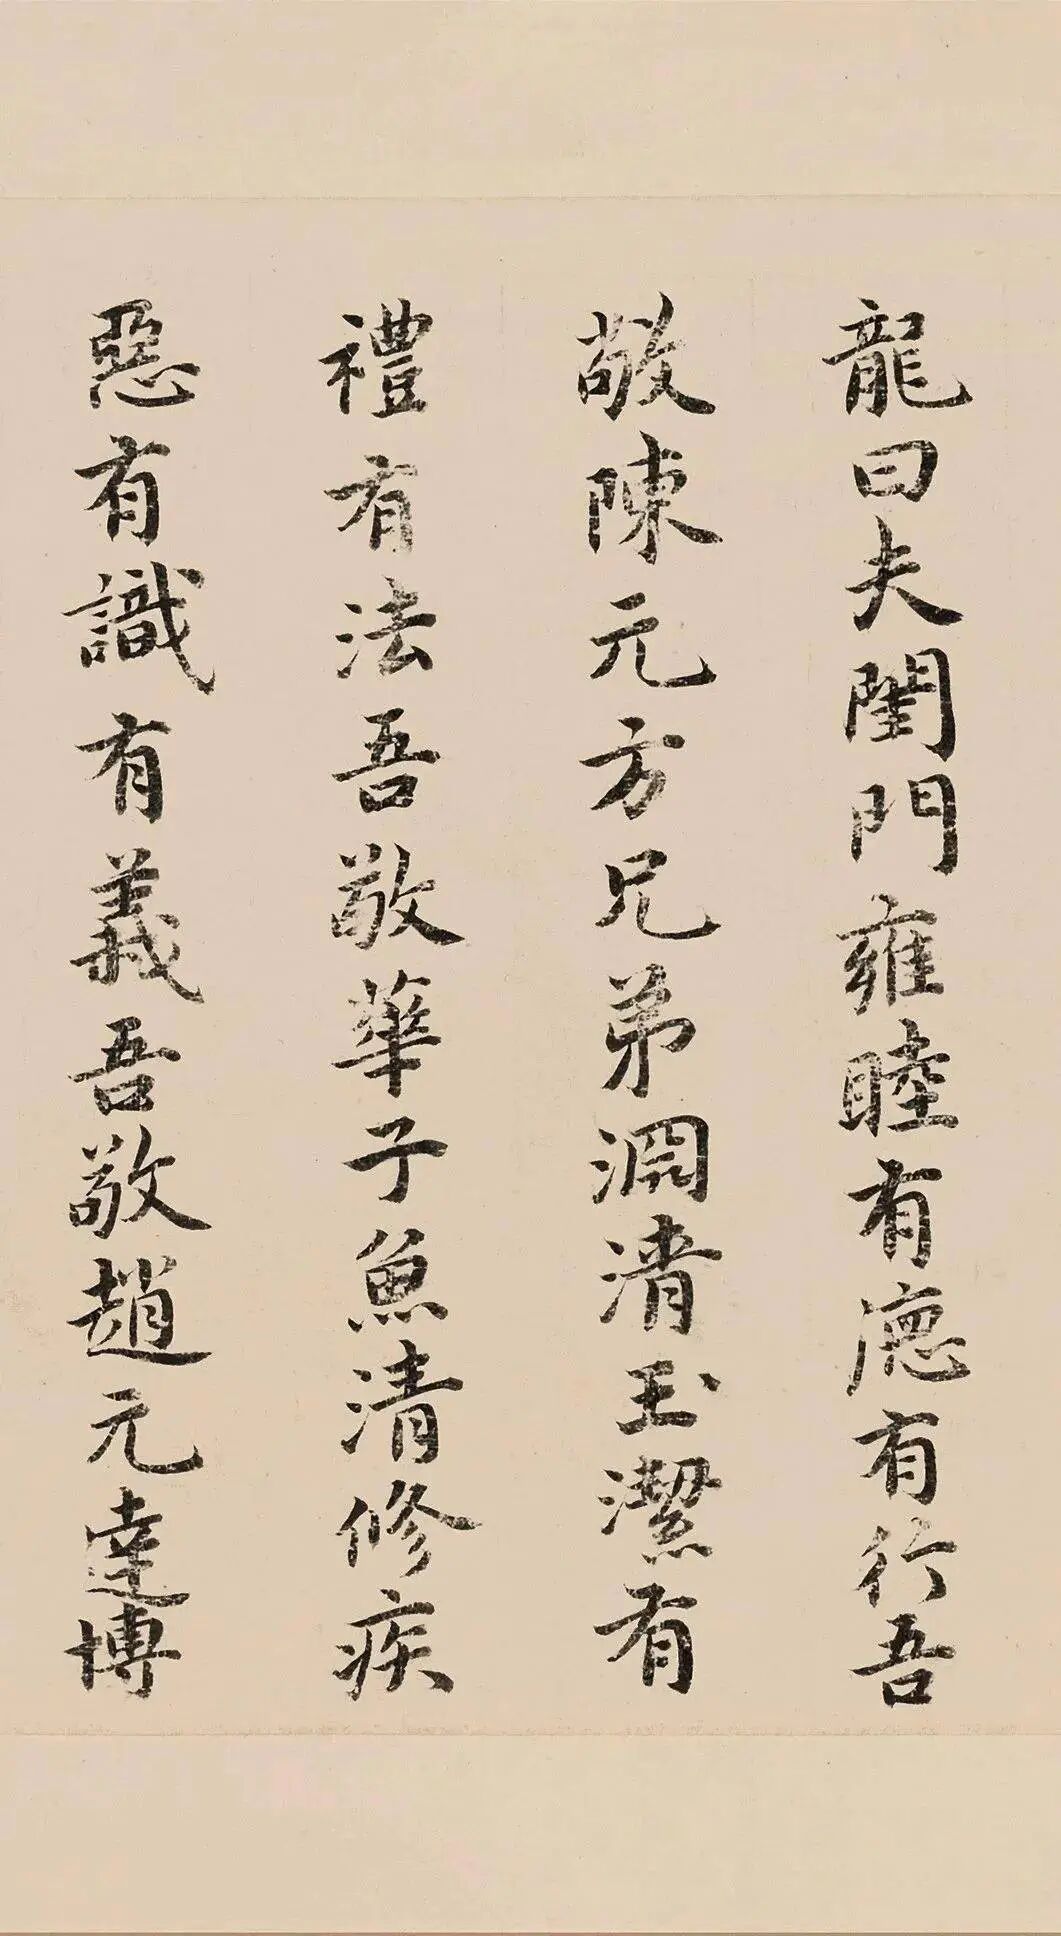 龍曰夫閨門雍睦有德有行吾
敬陳元方兄弟淵清玉潔有
禮有法吾敬華子魚清修疾
惡有識有義吾敬趙元達博